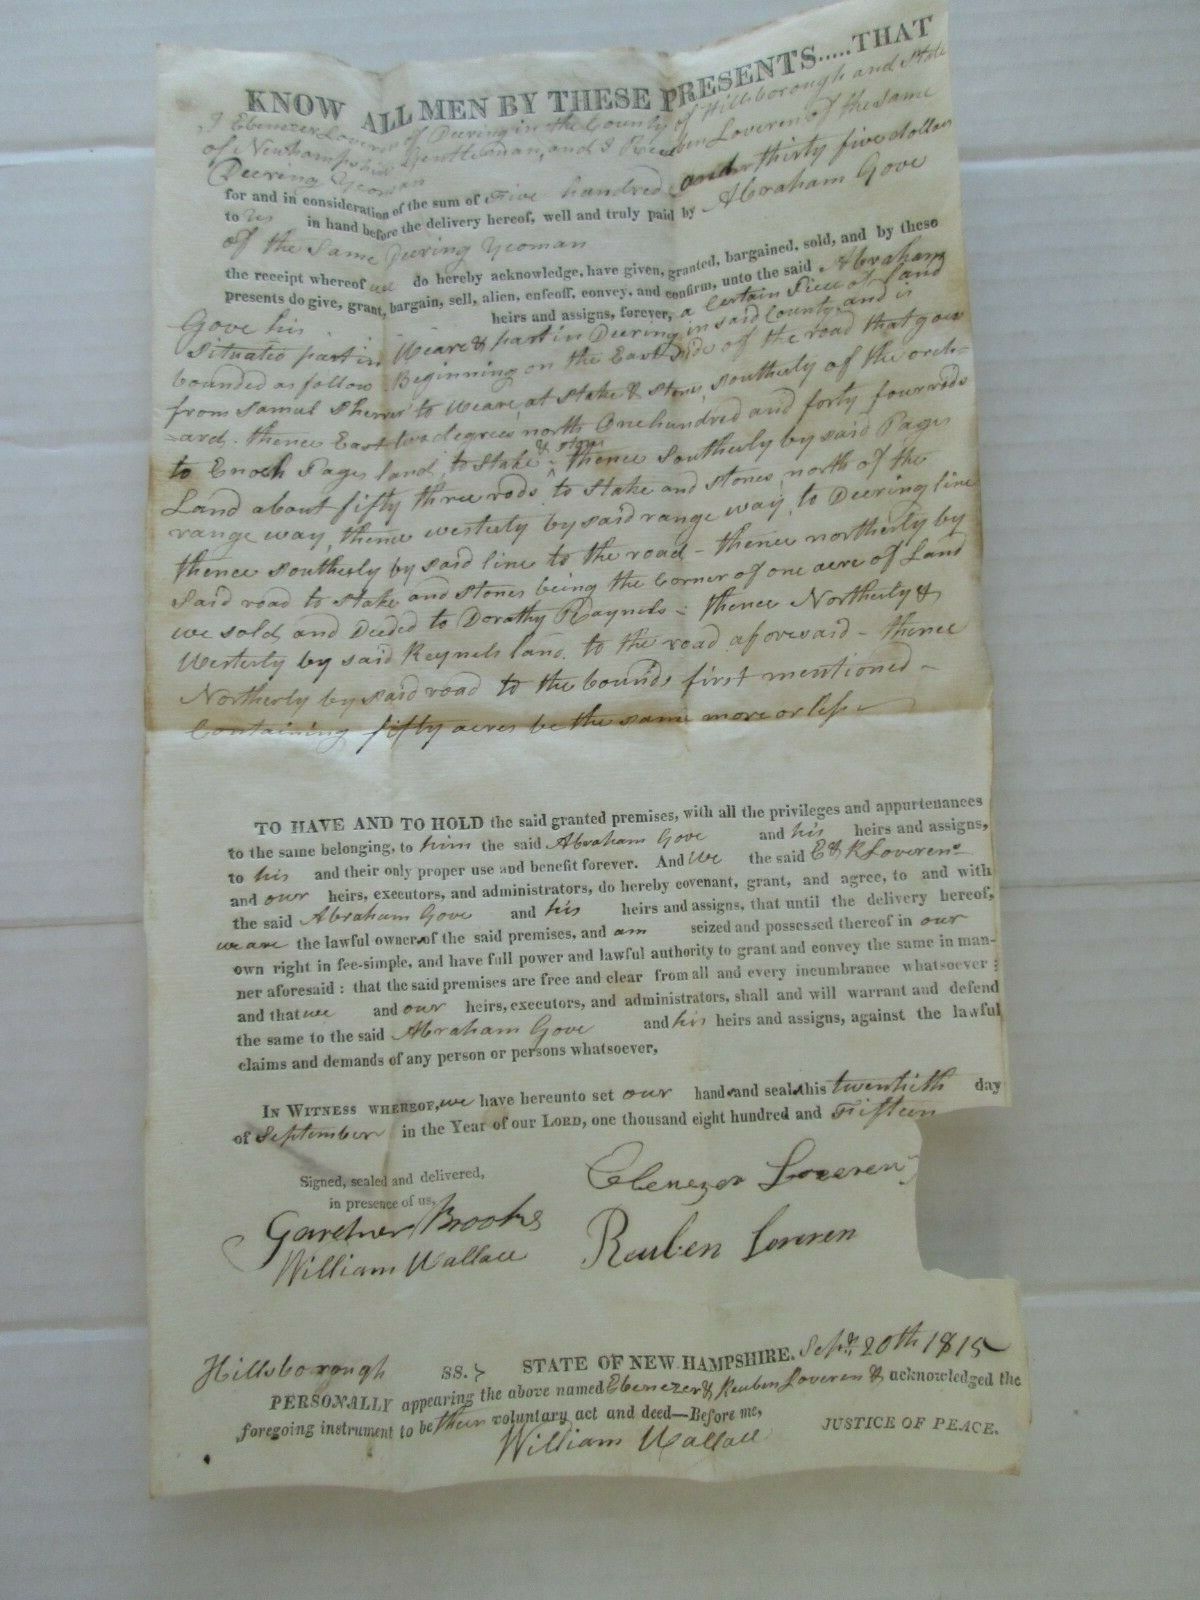 KNOW ALL MEN BY THESE PRESENTS.....THAT
I Ebenezer Loveren of Deering in the County of Hillsborough and State
of Newhampshire Gentleman, and I Reuben Loveren of the same
Deering Yeoman
for and in consideration of the sum of Five hundred and thirty five dollars
to us in hand before the delivery hereof, well and truly paid by Abraham Gove
of the Same Deering Yeoman
the receipt whereof we do hereby acknowledge, have given, granted, bargained, sold, and by these
presents do give, grant, bargain, sell, alien, enfeoff, convey, and confirm, unto the said Abraham
Gove his heirs and assigns, forever, a certain Piece of land
Situated part in Weare & part in Deering in said County, and is
bounded as follow Beginning on the East side of the road that goes
from Samuel Sherrer to Weare, at stake & stones, southerly of the orch=
=ard. thence East two degrees north One hundred and forty four rods
to Enoch Pages land, to stake & stones - thence Southerly by said Pages
Land about fifty three rods to stake and stones, north of the
range way, thence westerly by said range way, to Deering line
thence southerly by said line to the road - thence northerly by
said road to stake and stones being the Corner of one acre of Land
we sold, and Deeded to Dorathy Raynels - thence Northerly &
Westerly by said Reynels land. to the road aforesaid - thence
Northerly by said road to the bounds first mentioned -
Containing fifty acres be the same more or less
TO HAVE AND TO HOLD the said granted premises, with all the privileges and appurtenances
to the same belonging, to him the said Abraham Gove and his heirs and assigns,
to his and their only proper use and benefit forever. And We the said E & R Loverens
and our heirs, executors, and administrators, do hereby covenant, grant, and agree, to and with
the said Abraham Gove and his heirs and assigns, that until the delivery hereof,
we are the lawful owners of the said premises, and am seized and possessed thereof in our
own right in fee-simple, and have full power and lawful authority to grant and convey the same in man-
ner aforesaid : that the said premises are free and clear from all and every incumbrance whatsoever ;
and that we and our heirs, executors, and administrators, shall and will warrant and defend
the same to the said Abraham Gove and his heirs and assigns, against the lawful
claims and demands of any person or persons whatsoever,
IN WITNESS WHEREOF, we have hereunto set our hands and seals this twentieth day
of September in the Year of our LORD, one thousand eight hundred and Fifteen
Signed, sealed and delivered,
in presence of us,
Gardner Brooks
William Wallace
Ebenezer Loveren
Reuben Loveren
Hillsborough SS. STATE OF NEW-HAMPSHIRE. Septr. 20th 1815
PERSONALLY appearing the above named Ebenezer & Reuben Loveren & acknowledged the
foregoing instrument to be their voluntary act and deed—Before me,
William Wallace JUSTICE OF PEACE.